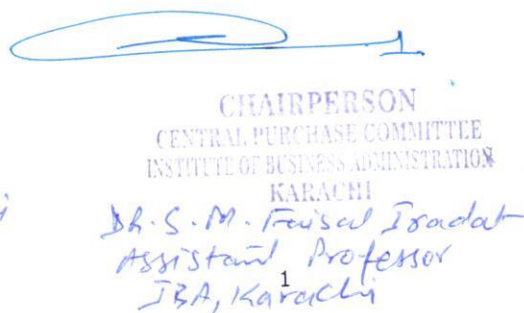 CHAIRPERSON
CENTRAL PURCHASE COMMITTEE
INSTITUTE OF BUSINESS ADMINISTRATION
KARACHI
Dr. S. M. Faisal Iradat
Assistant Professor
1
IBA, Karachi